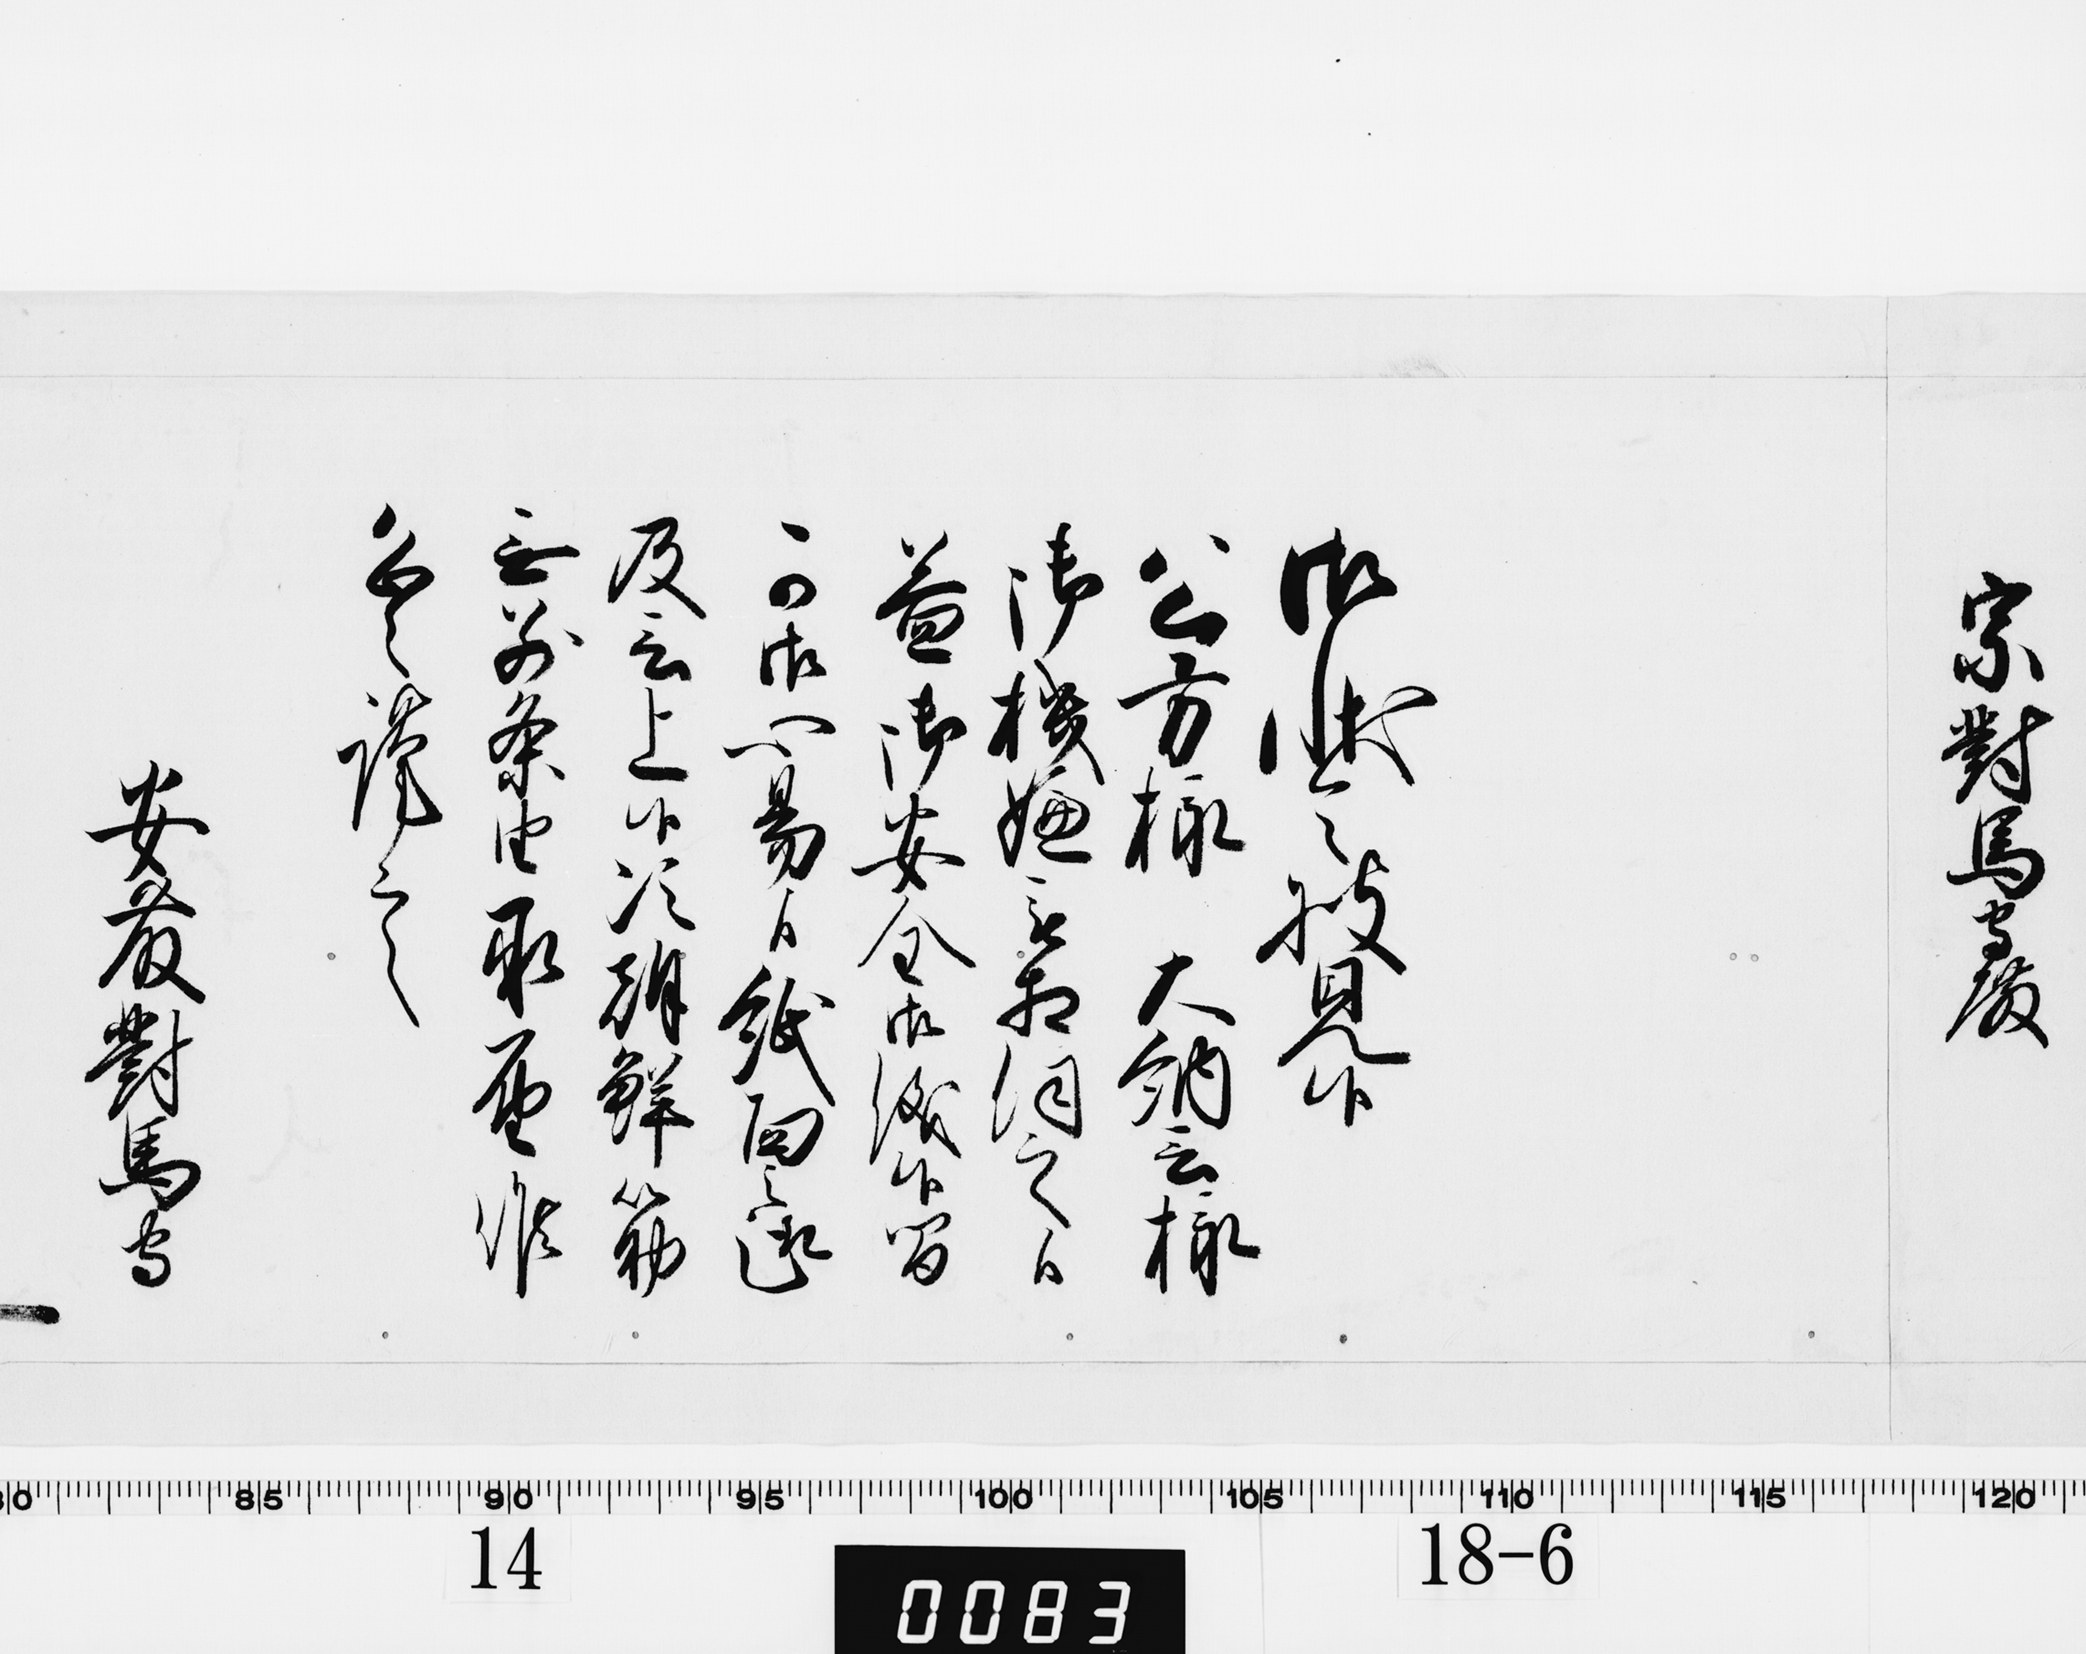 宗對馬守殿
御状令披見候
公方様 大納言様
御機嫌被相伺之候
益御安全御儀候間
可御心易候紙面之趣
及言上候次朝鮮筋
無別条由珎重候
恐々謹言
安藤對馬守
80 85 90 95 100 105 110 115 120
14 18-6
0083